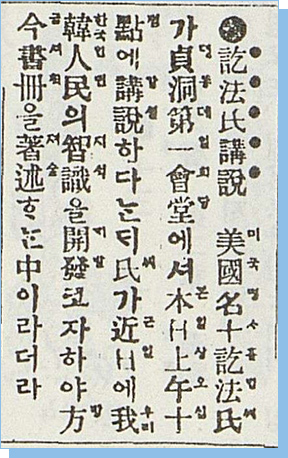 訖法氏講說 美國名士訖法氏
가貞洞第一會堂에셔本日上午十
點에講說하다는ᄃᆡ氏가近日에我
韓人民의智識을開發코자하야方
今書冊을著述ᄒᆞ는中이라더라